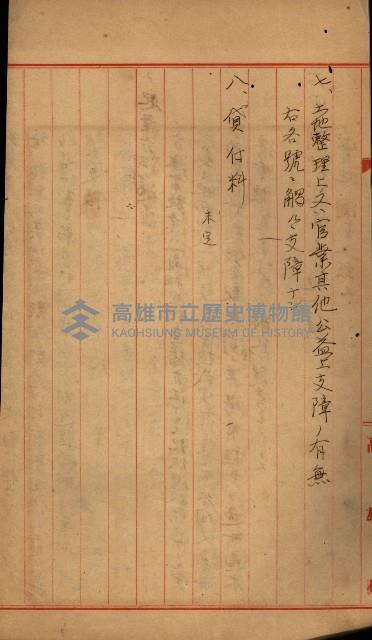 七、土地整理上又ハ官業其他公益上支障ノ有無
右各號ニ觸ルル支障ナシ
八、貸付料
未定
高雄州
高雄市立歷史博物館
KAOHSIUNG MUSEUM OF HISTORY